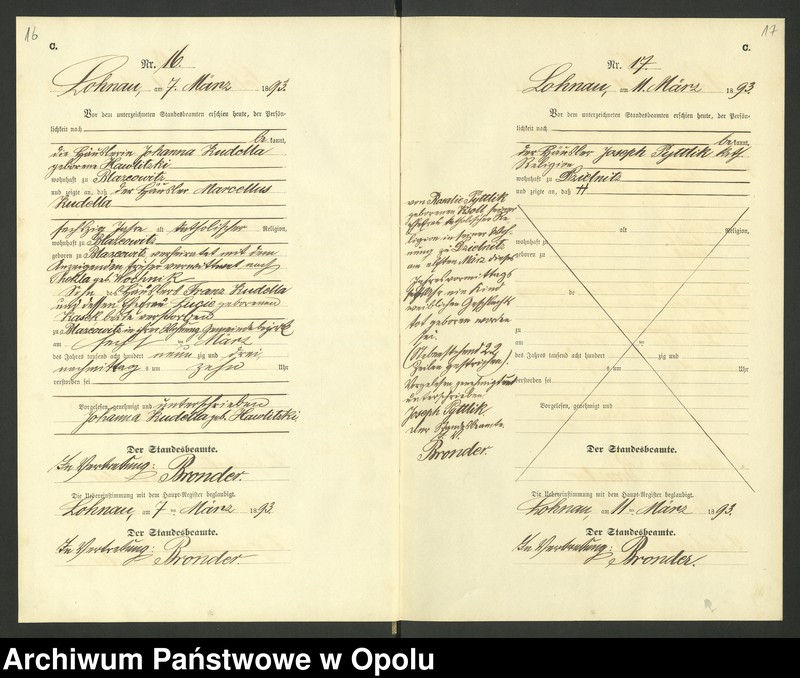 16
C.
Nr. 16.
Lohnau, am 7. März 1893.
Vor dem unterzeichneten Standesbeamten erschien heute, der Persön-
lichkeit nach
be kannt,
die Häuslerin Johanna Kudella
geborene Hawlitzki
wohnhaft zu Blazeowitz
und zeigte an, daß der Häusler Marcellus
Kudella
sechszig Jahre alt, katholischer Religion,
wohnhaft zu Blazeowitz
geboren zu Blazeowitz verheirathet mit dem
Anzeigenden früher verwittwet nach
Thekla geb. Kochnik
Sohn des Häuslers Franz Kudella
und dessen Ehefrau Lucie geborenen
beide verstorben
zu Blazeowitz in ihrer Wohnung
am sechs ten März
des Jahres tausend acht hundert neun zig und drei
nachmittag s um zehn Uhr
verstorben sei
Vorgelesen, genehmigt und unterschrieben
Johanna Kudella geb. Hawlitzki
Der Standesbeamte.
In Vertretung:
Bronder.
Die Uebereinstimmung mit dem Haupt-Register beglaubigt.
Lohnau, am 7 ten März 1893.
Der Standesbeamte.
In Vertretung:
Bronder.
17
C.
Nr. 17.
Lohnau, am 11. März 1893.
Vor dem unterzeichneten Standesbeamten erschien heute, der Persön-
lichkeit nach
be kannt,
der Häusler Joseph Pyttlik kath.
Religion
wohnhaft zu Dzielnitz
und zeigte an, daß
von Rosalie Pyttlik
geborenen Kroll seiner
Ehefrau katholischer Re-
ligion in seiner Woh-
nung zu Dzielnitz
am elften März dieses
Jahres vormittags
ein Kind
weiblichen Geschlechts
tot geboren worden
sei.
(Nebenstehend 22
Zeilen gestrichen).
Vorgelesen genehmigt und
unterschrieben
Joseph Pyttlik
Der Standesbeamte
Bronder.
alt Religion,
wohnhaft zu
geboren zu
de
zu
am ten
des Jahres tausend acht hundert zig und
s um Uhr
verstorben sei
Vorgelesen, genehmigt und
Der Standesbeamte.
Die Uebereinstimmung mit dem Haupt-Register beglaubigt.
Lohnau, am 11 ten März 1893.
Der Standesbeamte.
In Vertretung:
Bronder.
Archiwum Państwowe w Opolu